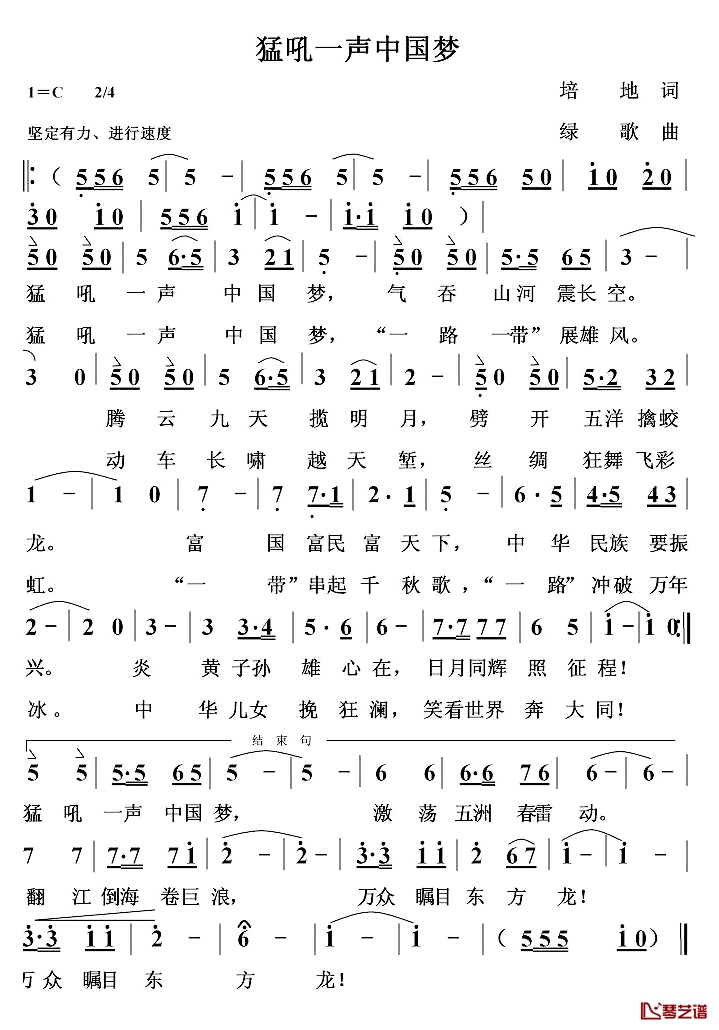 猛吼一声中国梦
1＝C 2/4 培 地 词
坚定有力、进行速度 绿 歌 曲
‖:（ 556 5 | 5 － | 556 5 | 5 － | 556 50 | i0 20 |
30 i0 | 556 i | i － | i·i i0 ）|
50 50 | 5 6·5 | 3 21 | 5 － | 50 50 | 5·5 65 | 3 － |
猛 吼 一 声 中 国 梦， 气 吞 山河 震长 空。
猛 吼 一 声 中 国 梦，“一 路 一带” 展雄 风。
3 0 | 50 50 | 5 6·5 | 3 21 | 2 － | 50 50 | 5·2 32 |
腾 云 九 天 揽 明 月， 劈 开 五洋 擒蛟
动 车 长 啸 越 天 堑， 丝 绸 狂舞 飞彩
1 － | 1 0 | 7 － | 7 7·1 | 2· 1 | 5 6·5 | 4·5 43 |
龙。 富 国 富民 富 天 下， 中 华 民族 要振
虹。 “一 带”串起 千 秋 歌，“一 路” 冲破 万年
2 － | 2 0 | 3 － | 3 3·4 | 5· 6 | 6 － | 7·7 77 | 6 5 | i － | i 0 :‖
兴。 炎 黄 子孙 雄 心 在， 日月 同辉 照 征 程！
冰。 中 华 儿女 挽 狂 澜， 笑看 世界 奔 大 同！
结 束 句
5 5 | 5·5 65 | 5 － | 5 － | 6 6 | 6·6 76 | 6 － | 6 － |
猛 吼 一声 中国 梦， 激 荡 五洲 春雷 动。
7 7 | 7·7 7i | 2 － | 2 － | 3·3 ii | 2 67 | i － | i － |
翻 江 倒海 卷巨 浪， 万众 瞩目 东 方 龙！
3·3 ii | 2 － | 6 － | i － | i － （ 555 | i0 ）‖
万 众 瞩目 东 方 龙！
琴艺谱